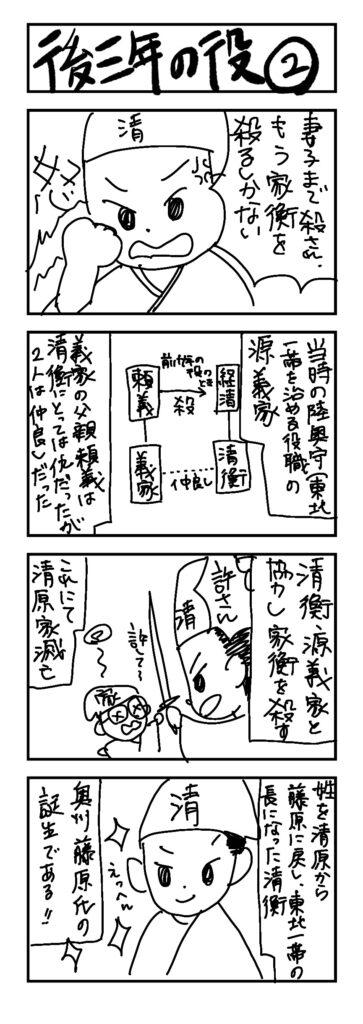 後三年の役②
妻子まで殺され、
もう家衡を
殺るしかない
清
当時の陸奥守(東北
一帯を治める役職)の
源義家
経清
前九年の
役の
とき
頼義
殺
清衡
仲良し
義家
義家の父親頼義は
清衡にとっては仇だったが
2人は仲良しだった
清衡、源義家と
協力し家衡を殺す
許さん
清
許して〜
家
これにて
清原家滅亡
姓を清原から
藤原に戻し、東北一帯の
長になった清衡
清
えっへん
奥州藤原氏の
誕生である!!